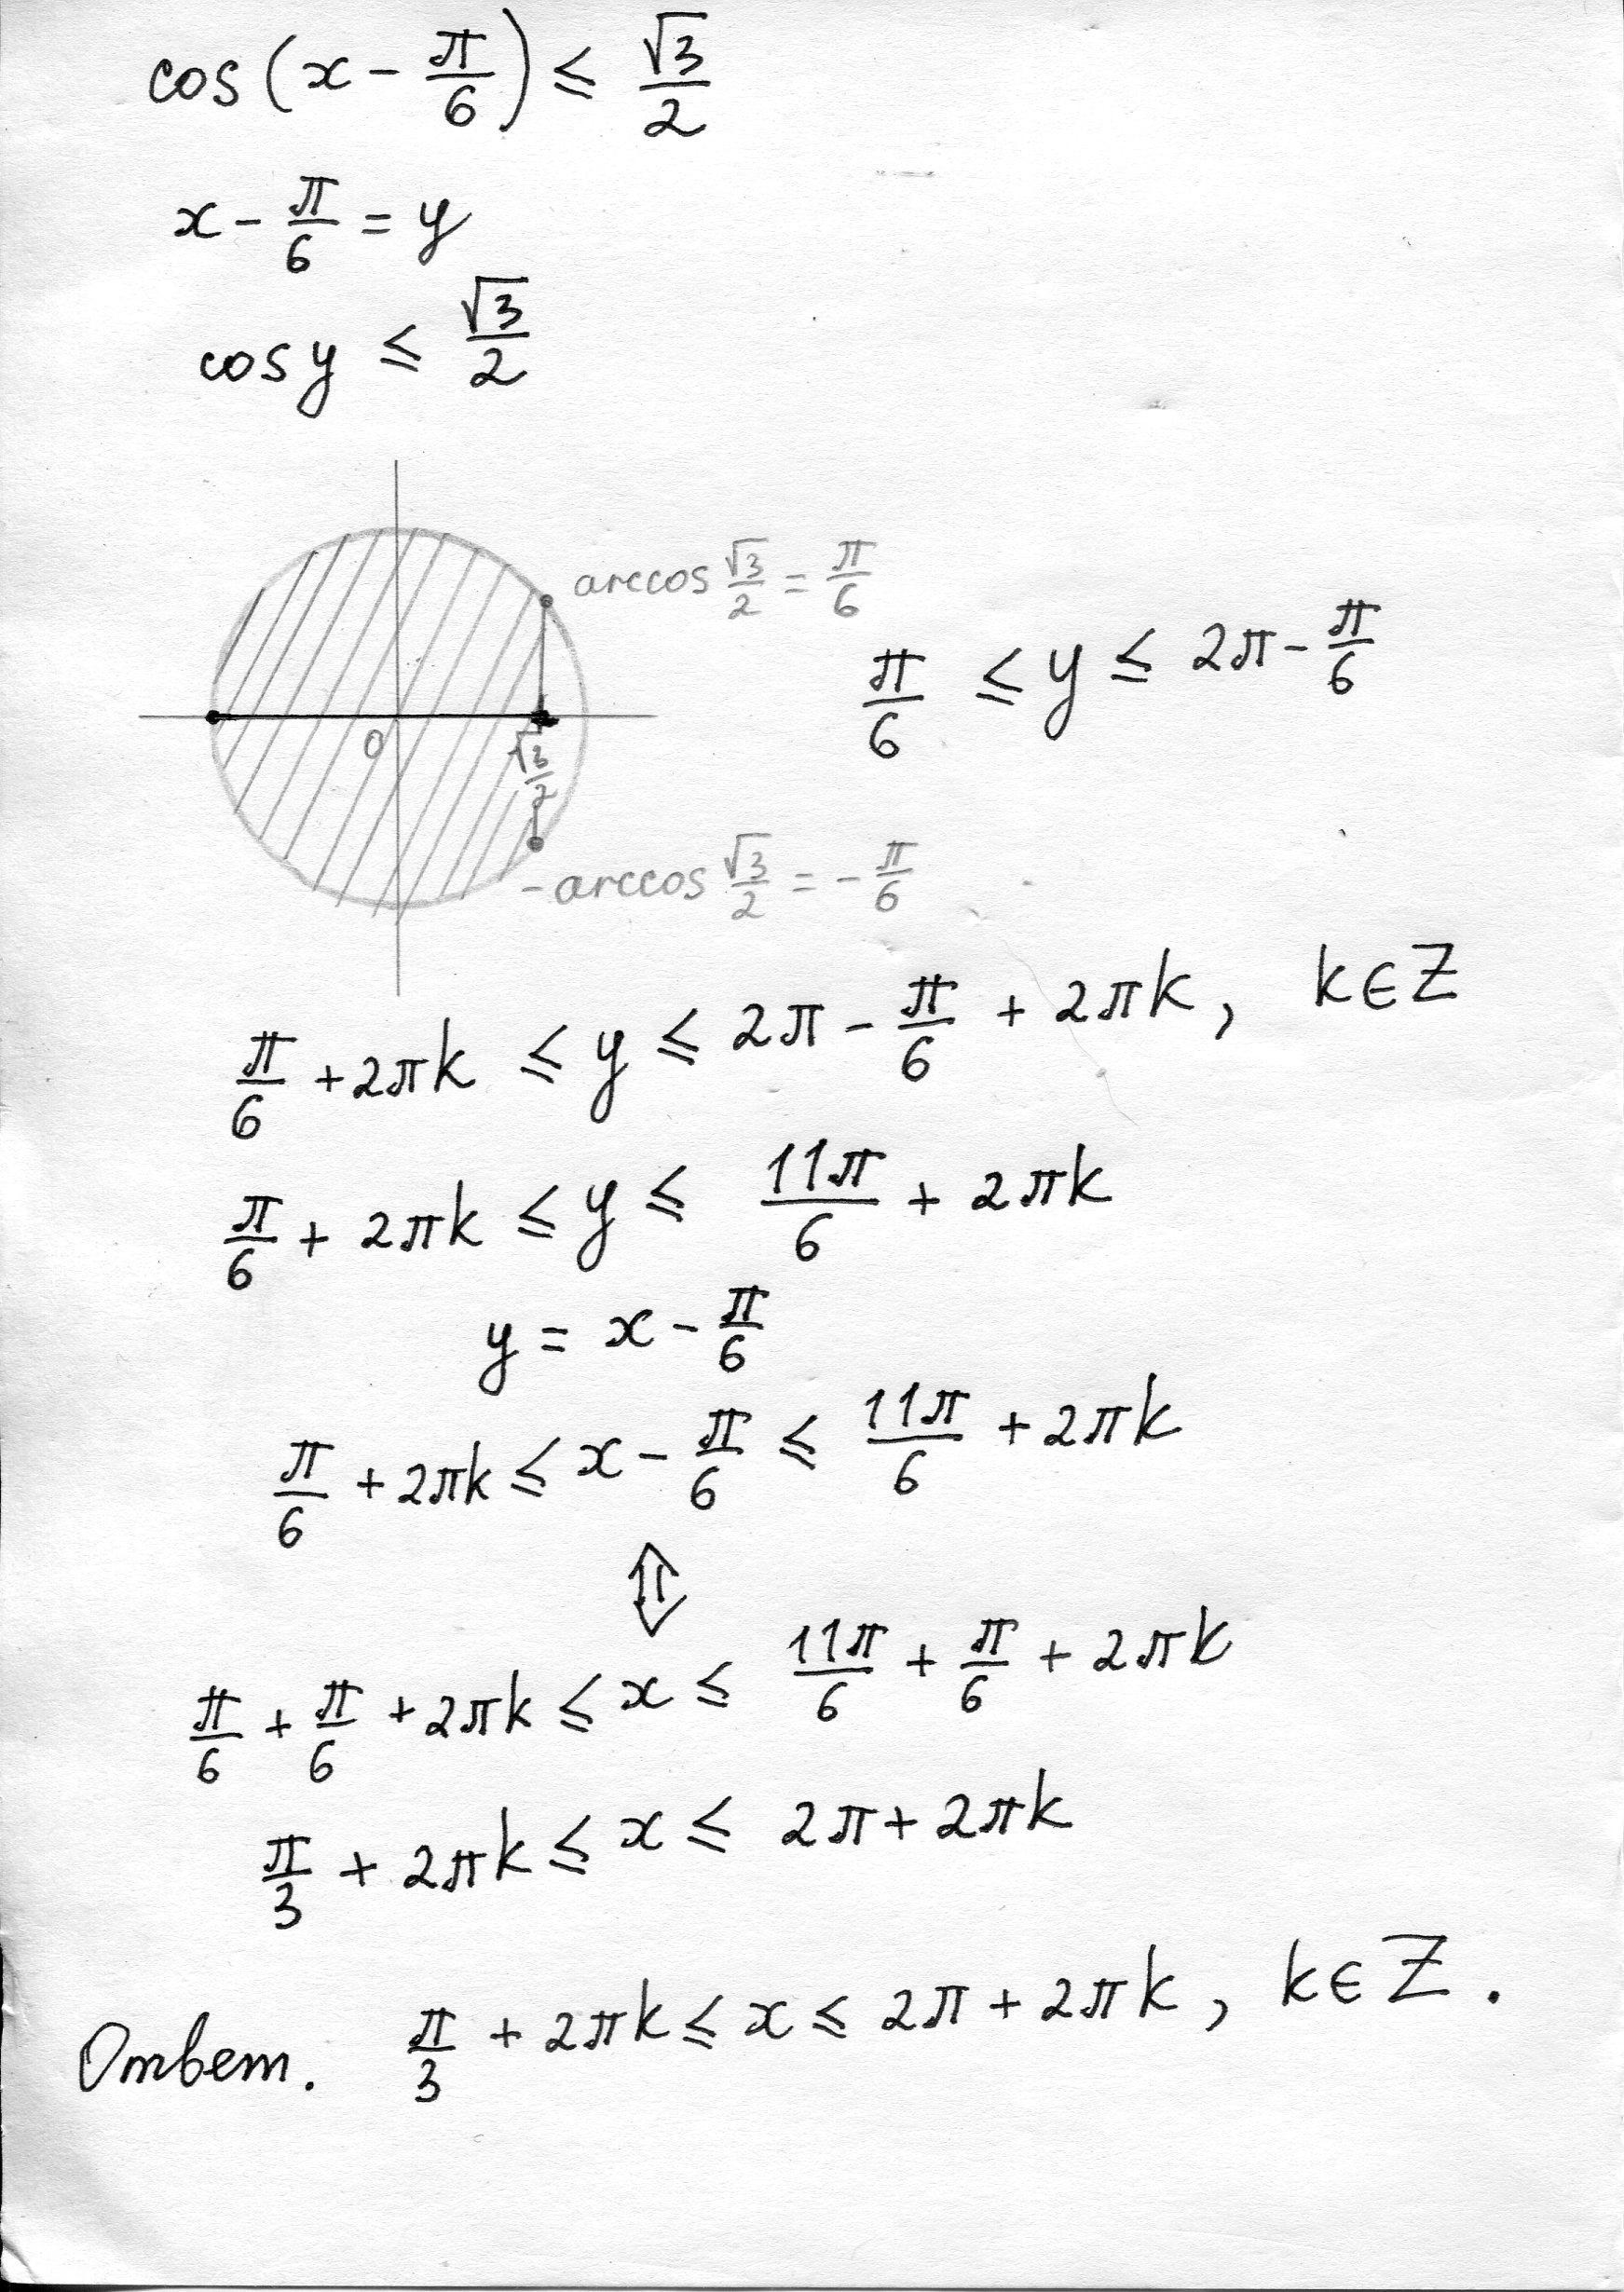 cos(x - π/6) ≤ √3/2
x - π/6 = y
cos y ≤ √3/2
arccos √3/2 = π/6
π/6 ≤ y ≤ 2π - π/6
0
√3/2
-arccos √3/2 = -π/6
π/6 + 2πk ≤ y ≤ 2π - π/6 + 2πk, k∈Z
π/6 + 2πk ≤ y ≤ 11π/6 + 2πk
y = x - π/6
π/6 + 2πk ≤ x - π/6 ≤ 11π/6 + 2πk
⇕
π/6 + π/6 + 2πk ≤ x ≤ 11π/6 + π/6 + 2πk
π/3 + 2πk ≤ x ≤ 2π + 2πk
Ответ. π/3 + 2πk ≤ x ≤ 2π + 2πk, k∈Z.